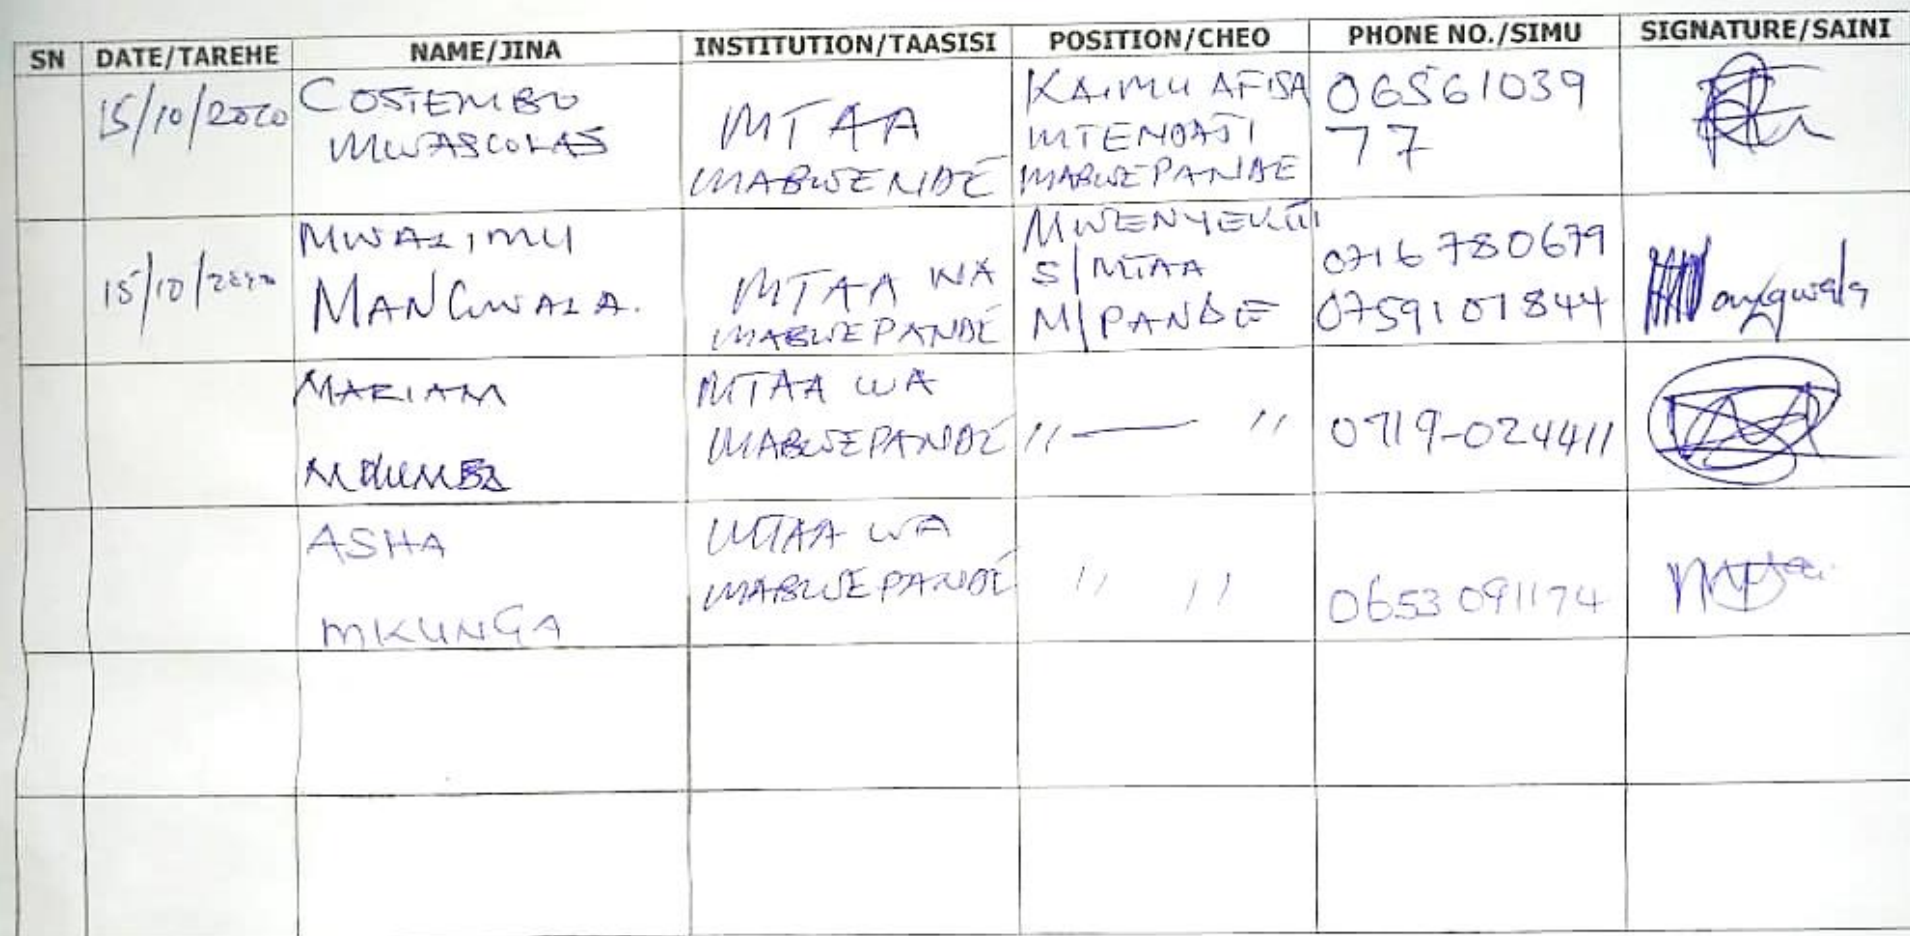 SN DATE/TAREHE NAME/JINA INSTITUTION/TAASISI POSITION/CHEO PHONE NO./SIMU SIGNATURE/SAINI
15/10/2020
COSTEMBO
MWASCOLAS
MTAA
MABWENDE
KAIMU AFISA
MTENDAJI
MABWEPANDE
06561039
77
15/10/2020
MWALIMU
MANGWALA.
MTAA WA
MABWEPANDE
MWENYEKITI
S/MTAA
M/PANDE
0716 780679
0759101844
MARIAM
MTAA WA
MABWEPANDE
〃 — 〃
0719-024411
ASHA
MKUNGA
MTAA WA
MABWEPANDE
〃 〃
0653 091174